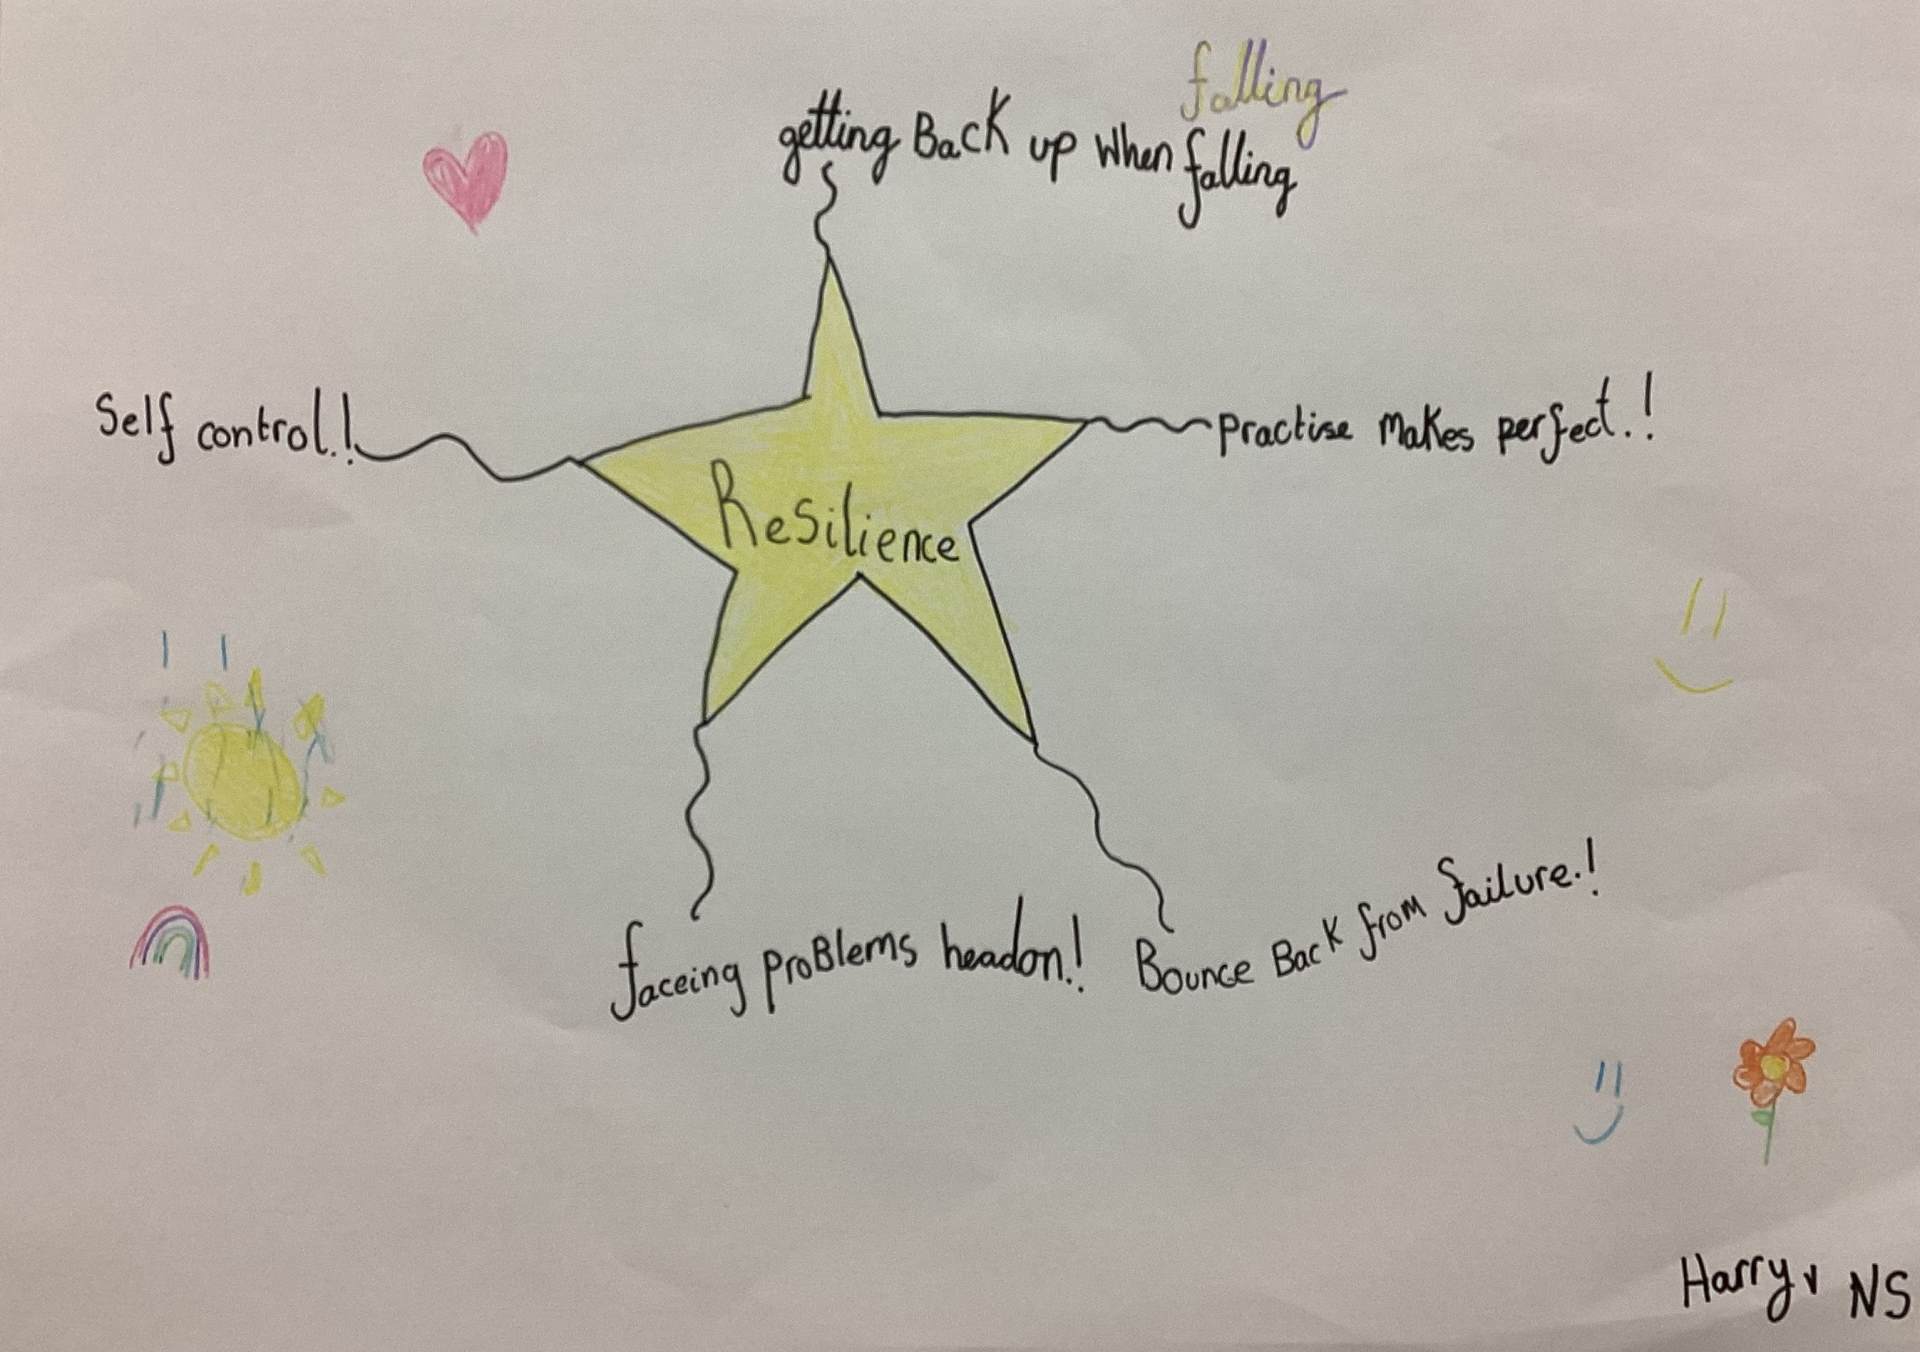 falling
getting Back up when falling
Self control.!
practise makes perfect.!
Resilience
faceing problems headon!.
Bounce Back from failure.!
Harry v NS